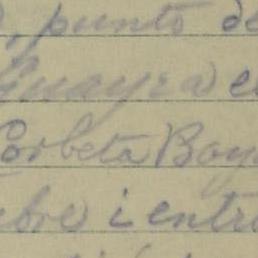 , punto de
Guayra e
Corbeta Boy
bre i entr